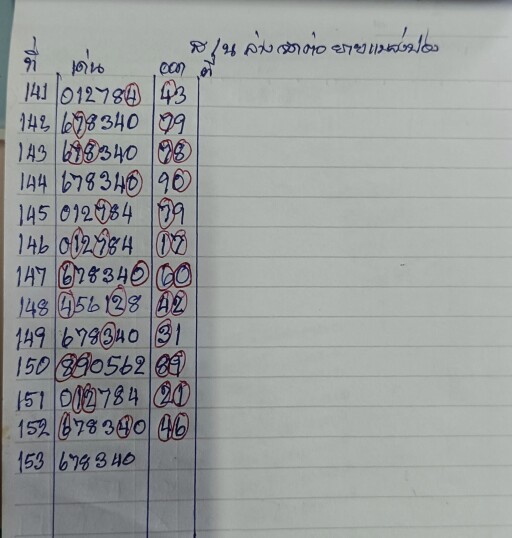 ที่ เด่น ออก สูน ล่าง
ที่
141 012784 43
142 678340 79
143 678340 78
144 678340 90
145 012784 79
146 012784 17
147 678340 60
148 456128 42
149 678340 31
150 890562 89
151 012784 21
152 678340 46
153 678340